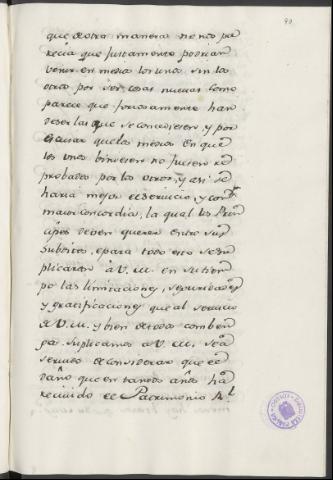 90
que de otra manera no nos pa
recia que justamente podrian
venir en medio los unos sin los
otros por ser cosas nuevas como
parece que forzosamente han
deser las que se concedieren, y por
escusar que los medios en que
los unos binieren no fuesen re
probados por los otros, y asi se
haria mejor el servicio, y con
maior concordia, la qual los Prin
cipes deven querer entre sus
subditos, epara todo esto se su
plicaran à V. M. en su tiem
po las limitaciones, seguridades
y gratificaciones que al servicio
de V. M. y bien de todos combén
ga. Suplicamos à V. M. sea
servido de considerar que el
daño que en tantos años ha
recivido el Patrimonio Rl.